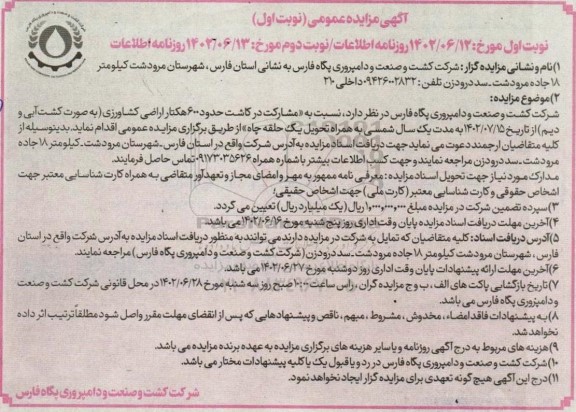 آگهی مزایده عمومی (نوبت اول)
نوبت اول مورخ: ۱۴۰۲/۰۶/۱۲ روزنامه اطلاعات/ نوبت دوم مورخ: ۱۴۰۲/۰۶/۱۳ روزنامه اطلاعات
۱) نام و نشانی مزایده گزار: شرکت کشت و صنعت و دامپروری پگاه فارس به نشانی استان فارس، شهرستان مرودشت کیلومتر
۱۸ جاده مرودشت - سد درودزن تلفن: ۰۹۴۲۶۰۰۲۸۳۲ داخلی ۲۱۰
۲) موضوع مزایده:
شرکت کشت و صنعت و دامپروری پگاه فارس در نظر دارد، نسبت به «مشارکت در کاشت حدود ۶۰۰ هکتار اراضی کشاورزی (به صورت کشت آبی و
دیم) از تاریخ ۱۴۰۲/۰۷/۱۵ به مدت یک سال شمسی به همراه تحویل یک حلقه چاه» از طریق برگزاری مزایده عمومی اقدام نماید. بدینوسیله از
کلیه متقاضیان ارجمند دعوت می نماید جهت دریافت اسناد مزایده به آدرس شرکت واقع در استان فارس - شهرستان مرودشت، کیلومتر ۱۸ جاده
مرودشت - سد درودزن مراجعه نمایند و جهت کسب اطلاعات بیشتر با شماره همراه ۰۹۱۷۳۰۳۵۶۲۶ تماس حاصل فرمایند.
مدارک مورد نیاز جهت تحویل اسناد مزایده: معرفی نامه ممهور به مهر و امضای مجاز و تعهدآور متقاضی به همراه کارت شناسایی معتبر جهت
اشخاص حقوقی و کارت شناسایی معتبر (کارت ملی) جهت اشخاص حقیقی؛
۳) سپرده تضمین شرکت در مزایده مبلغ ۱،۰۰۰،۰۰۰،۰۰۰ ریال (یک میلیارد ریال) تعیین می گردد.
۴) آخرین مهلت دریافت اسناد مزایده پایان وقت اداری روز پنج شنبه مورخ ۱۴۰۲/۰۶/۱۶ می باشد.
۵) آدرس دریافت اسناد: کلیه متقاضیان که تمایل به شرکت در مزایده دارند می توانند به منظور دریافت اسناد مزایده به آدرس شرکت واقع در استان
فارس، شهرستان مرودشت کیلومتر ۱۸ جاده مرودشت - سد درودزن (شرکت کشت و صنعت و دامپروری پگاه فارس) مراجعه نمایند.
۶) آخرین مهلت ارائه پیشنهادات پایان وقت اداری روز دوشنبه مورخ ۱۴۰۲/۰۶/۲۷ می باشد.
۷) تاریخ بازگشایی پاکت های الف، ب و ج مزایده گران، راس ساعت ۱۰:۰۰ صبح روز سه شنبه مورخ ۱۴۰۲/۰۶/۲۸ در محل قانونی شرکت کشت و صنعت
و دامپروری پگاه فارس می باشد.
۸) به پیشنهادات فاقد امضاء، مخدوش، مشروط، مبهم، ناقص و پیشنهادهایی که پس از انقضای مهلت مقرر واصل شود مطلقاً ترتیب اثر داده
نخواهد شد.
۹) هزینه های مربوط به درج آگهی روزنامه و یا سایر هزینه های برگزاری مزایده به عهده برنده مزایده می باشد.
۱۰) شرکت کشت و صنعت و دامپروری پگاه فارس در رد و یا قبول یک یا کلیه پیشنهادات مختار می باشد.
۱۱) درج این آگهی هیچ گونه تعهدی برای مزایده گزار ایجاد نخواهد نمود.
شرکت کشت و صنعت و دامپروری پگاه فارس